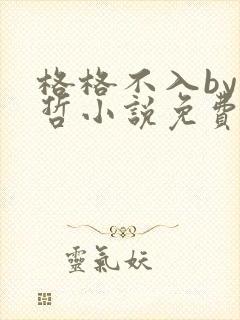 格格不入by
哲小說免費
靈氣妖